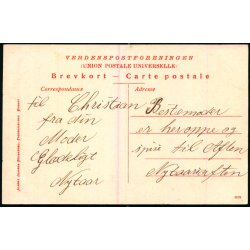 VERDENSPOSTFORENINGEN
(UNION POSTALE UNIVERSELLE)
Brevkort — Carte postale
Correspondance
Adresse
til Christian
fra din
Moder
Glædeligt
Nytaar
Bestemoder
er heroppe og
spise til Aften
Nytaarsaften